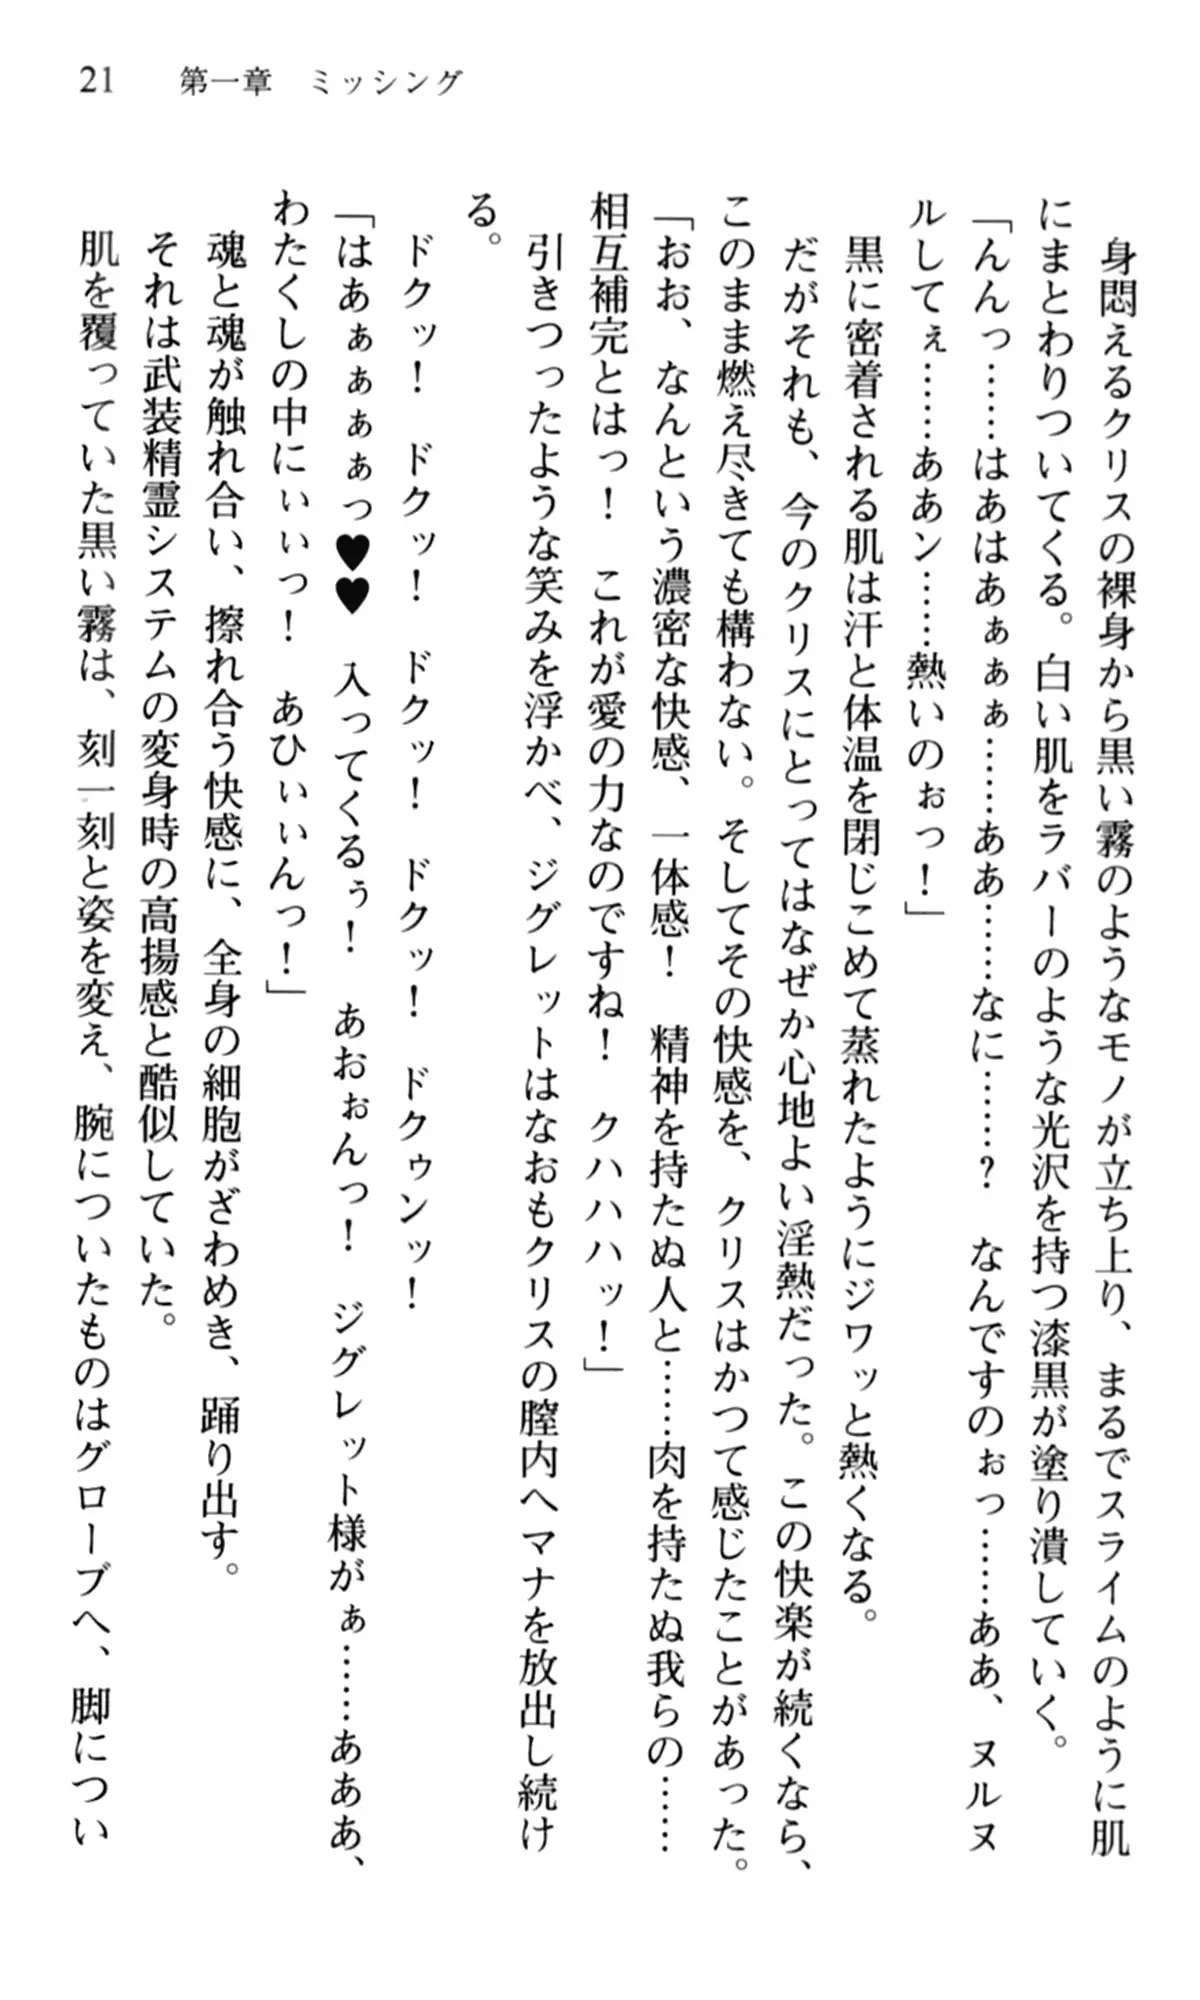 21　第一章　ミッシング
　身悶えるクリスの裸身から黒い霧のようなモノが立ち上り、まるでスライムのように肌
にまとわりついてくる。白い肌をラバーのような光沢を持つ漆黒が塗り潰していく。
「んんっ……はあはあぁぁぁ……ああ……なに……？　なんですのぉっ……ああ、ヌルヌ
ルしてぇ……ああン……熱いのぉっ！」
　黒に密着される肌は汗と体温を閉じこめて蒸れたようにジワッと熱くなる。
　だがそれも、今のクリスにとってはなぜか心地よい淫熱だった。この快楽が続くなら、
このまま燃え尽きても構わない。そしてその快感を、クリスはかつて感じたことがあった。
「おお、なんという濃密な快感、一体感！　精神を持たぬ人と……肉を持たぬ我らの……
相互補完とはっ！　これが愛の力なのですね！　クハハハッ！」
　引きつったような笑みを浮かべ、ジグレットはなおもクリスの膣内へマナを放出し続け
る。
　ドクッ！　ドクッ！　ドクッ！　ドクッ！　ドクゥンッ！
「はあぁぁぁぁっ♥♥　入ってくるぅ！　あおぉんっ！　ジグレット様がぁ……あああ、
わたくしの中にぃぃっ！　あひぃぃんっ！」
　魂と魂が触れ合い、擦れ合う快感に、全身の細胞がざわめき、踊り出す。
　それは武装精霊システムの変身時の高揚感と酷似していた。
　肌を覆っていた黒い霧は、刻一刻と姿を変え、腕についたものはグローブへ、脚につい